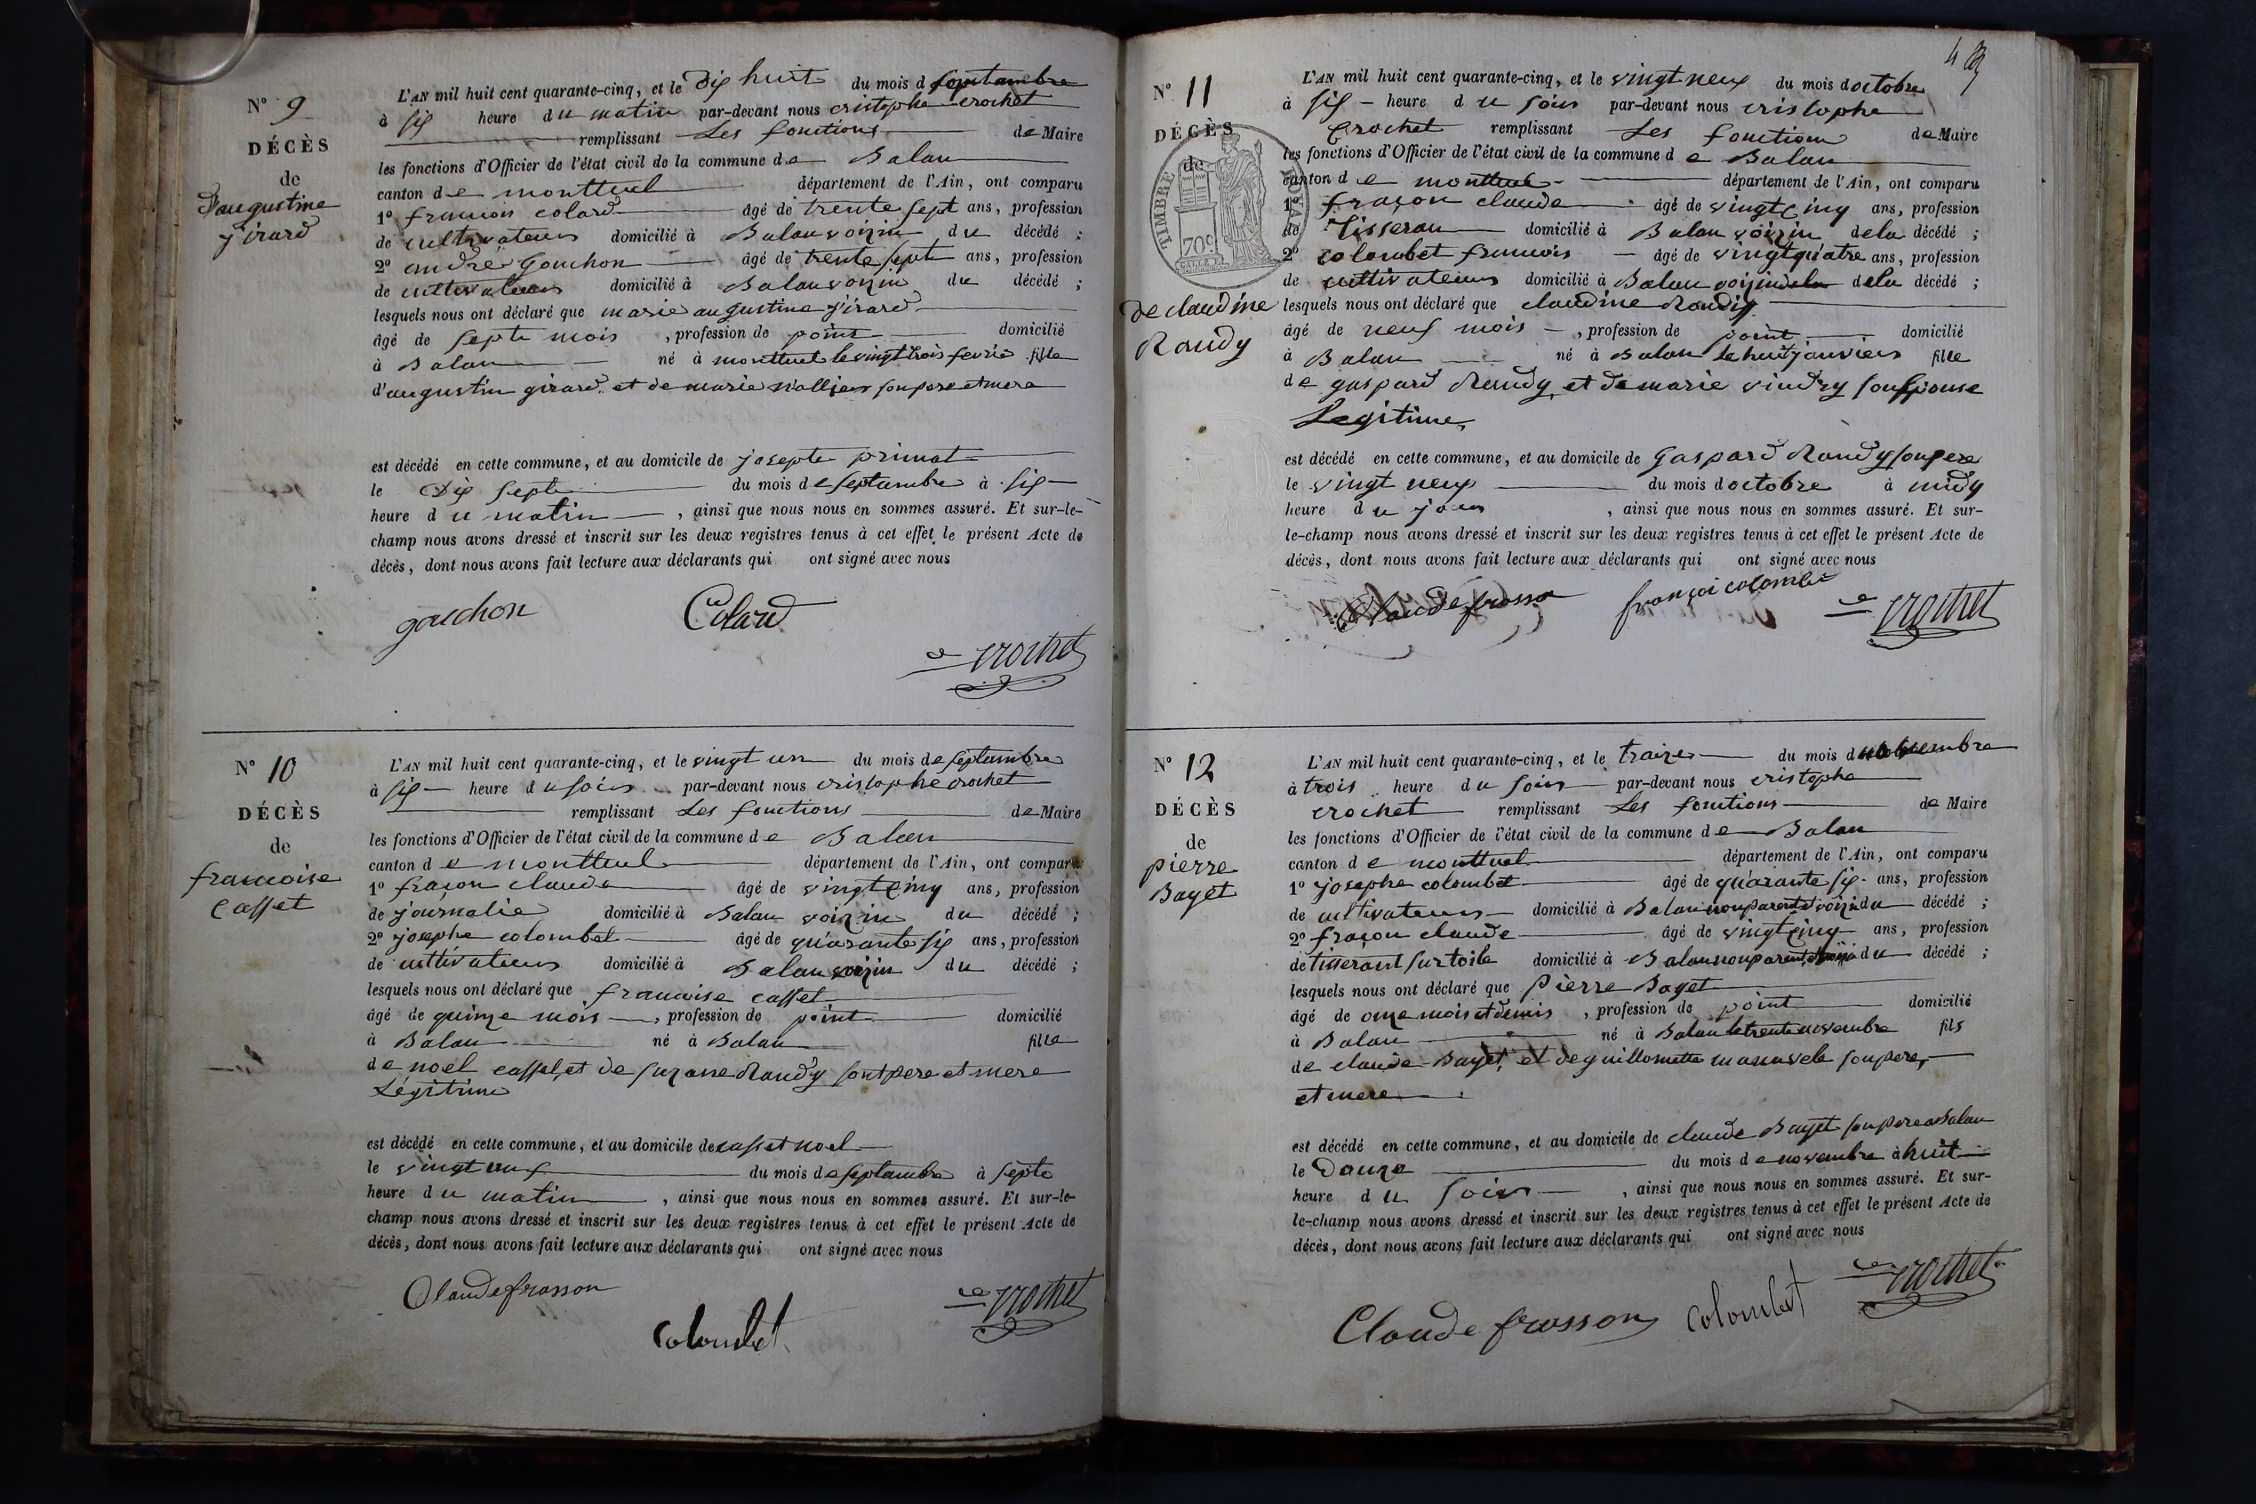 N° 9
DÉCÈS
de
d'augustine
girard
L'AN mil huit cent quarante-cinq, et le dix huit du mois d septambre
à six heure du matin par-devant nous cristophe crochet
remplissant Les fonctions de Maire
les fonctions d'Officier de l'état civil de la commune de Balan
canton de montluel département de l'Ain, ont comparu
1° francois colard âgé de trente sept ans, profession
de cultivateur domicilié à Balan voizin du décédé ;
2° andre gouchon âgé de trente sept ans, profession
de cultivateur domicilié à Balan voizin du décédé ;
lesquels nous ont déclaré que marie augustine girard
âgé de septe mois , profession de point domicilié
à Balan né à montluel le vingt trois fevrie fille
d'augustin girard et de marie son pere et mere
est décédé en cette commune, et au domicile de josepte primat
le dix septe du mois de septambre à six
heure du matin , ainsi que nous nous en sommes assuré. Et sur-le-
champ nous avons dressé et inscrit sur les deux registres tenus à cet effet le présent Acte de
décès, dont nous avons fait lecture aux déclarants qui ont signé avec nous
gouchon Colard
crochet
N° 10
DÉCÈS
de
francoise
casset
L'AN mil huit cent quarante-cinq, et le vingt un du mois de septambre
à six heure du soir par-devant nous cristophe crochet
remplissant Les fonctions de Maire
les fonctions d'Officier de l'état civil de la commune de Balan
canton de montluel département de l'Ain, ont comparu
1° fraçon claude âgé de vingt cinq ans, profession
de journalie domicilié à Balan voizin du décédé ;
2° josephe colombet âgé de quarante six ans, profession
de cultivateur domicilié à Balan voizin du décédé ;
lesquels nous ont déclaré que francoise casset
âgé de quinze mois , profession de point domicilié
à Balan né à Balan fille
de noel casset, et de suzane Raudy sont pere et mere
Légitime
est décédé en cette commune, et au domicile de casset noel
le vingt du mois de septambre à septe
heure du matin , ainsi que nous nous en sommes assuré. Et sur-le-
champ nous avons dressé et inscrit sur les deux registres tenus à cet effet le présent Acte de
décès, dont nous avons fait lecture aux déclarants qui ont signé avec nous
Claude frasson
colombet
crochet
N° 11
DÉCÈS
de
TIMBRE ROYAL
70c
de claudine
Raudy
L'AN mil huit cent quarante-cinq, et le vingt neuf du mois d octobre
à six heure du soir par-devant nous cristophe
Crochet remplissant Les fonction de Maire
les fonctions d'Officier de l'état civil de la commune de Balan
canton de montluel département de l'Ain, ont comparu
1° fraçon claude âgé de vingt cinq ans, profession
de Tisseran domicilié à Balan voizin dela décédé ;
2° colombet francois âgé de vingt quatre ans, profession
de cultivateur domicilié à Balan voizin dela dela décédé ;
lesquels nous ont déclaré que claudine Raudy
âgé de neuf mois , profession de point domicilié
à Balan né à Balan le huit janvier fille
de gaspard Raudy, et de marie vindry son Epouse
Legitime,
est décédé en cette commune, et au domicile de Gaspard Raudy son pere
le vingt neuf du mois d octobre à midy
heure du jour , ainsi que nous nous en sommes assuré. Et sur-
le-champ nous avons dressé et inscrit sur les deux registres tenus à cet effet le présent Acte de
décès, dont nous avons fait lecture aux déclarants qui ont signé avec nous
Claude frasson françoi colombet crochet
N° 12
DÉCÈS
de
pierre
Bayet
L'AN mil huit cent quarante-cinq, et le traize du mois d novembre
à trois heure du soir par-devant nous cristophe
crochet remplissant Les fonctions de Maire
les fonctions d'Officier de l'état civil de la commune de Balan
canton de montluel département de l'Ain, ont comparu
1° josephe colombet âgé de quarante six ans, profession
de cultivateur domicilié à Balan non parent et voizin du décédé ;
2° fraçon claude âgé de vingt cinq ans, profession
de tisserant sur toile domicilié à Balan non parent du décédé ;
lesquels nous ont déclaré que pierre Bayet
âgé de onze mois et demis , profession de point domicilié
à Balan né à Balan le trente novembre fils
de claude Bayet, et de guillomette son pere,
et mere
est décédé en cette commune, et au domicile de claude Bayet son pere a Balan
le Douze du mois de novembre à huit
heure du soir , ainsi que nous nous en sommes assuré. Et sur-
le-champ nous avons dressé et inscrit sur les deux registres tenus à cet effet le présent Acte de
décès, dont nous avons fait lecture aux déclarants qui ont signé avec nous
Claude frasson colombet crochet